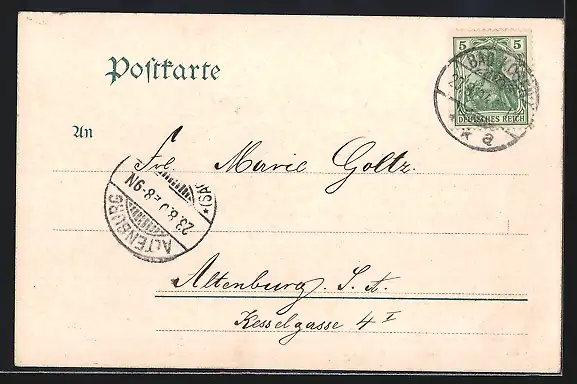 Postkarte
5 5
DEUTSCHES REICH
BAD
a
An
Frl. Marie Goltz.
ALTENBURG
23.8.
8-9N
Altenburg. S. A.
Kesselgasse 4 I